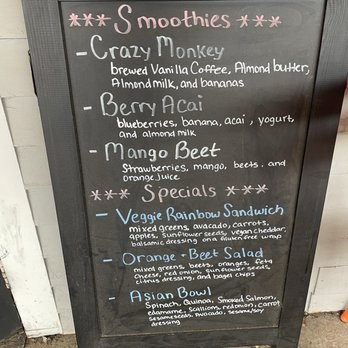 *** Smoothies ***
- Crazy Monkey
brewed Vanilla Coffee, Almond butter,
Almond milk, and bananas
- Berry Acai
blueberries, banana, acai, yogurt,
and almond milk
- Mango Beet
Strawberries, mango, beets. and
orange juice
*** Specials ***
- Veggie Rainbow Sandwich
mixed greens, avocado, carrots,
apples, sunflower seeds, vegan cheddar,
balsamic dressing on a gluten free wrap
- Orange - Beet Salad
mixed greens, beets, oranges, feta
cheese, red onion, sunflower seeds,
citrus dressing, and bagel chips
- Asian Bowl
Spinach, Quinoa, Smoked Salmon,
edamame, scallions, red onion, carrot
sesame seeds, Avocado, sesame/soy
dressing